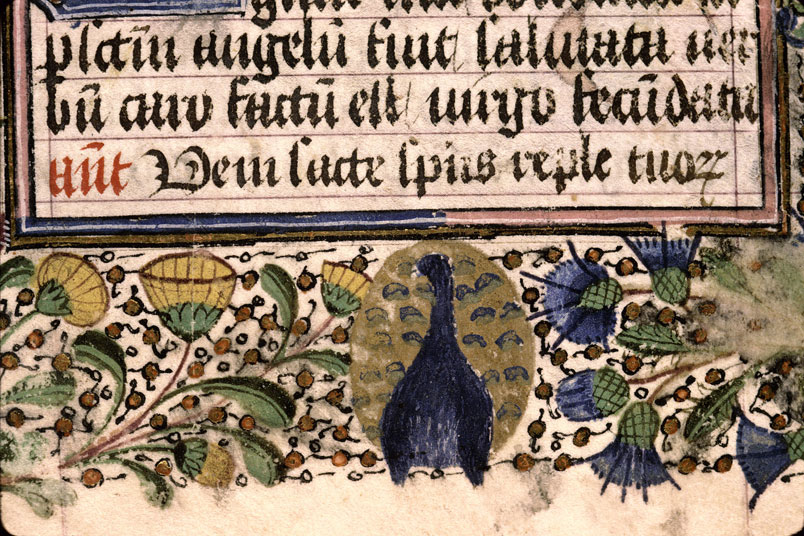 psctīm angelū fuit salutata uer
bū caro factū est uirgo fecūdata
añt Veni sācte spūs reple tuoꝝ